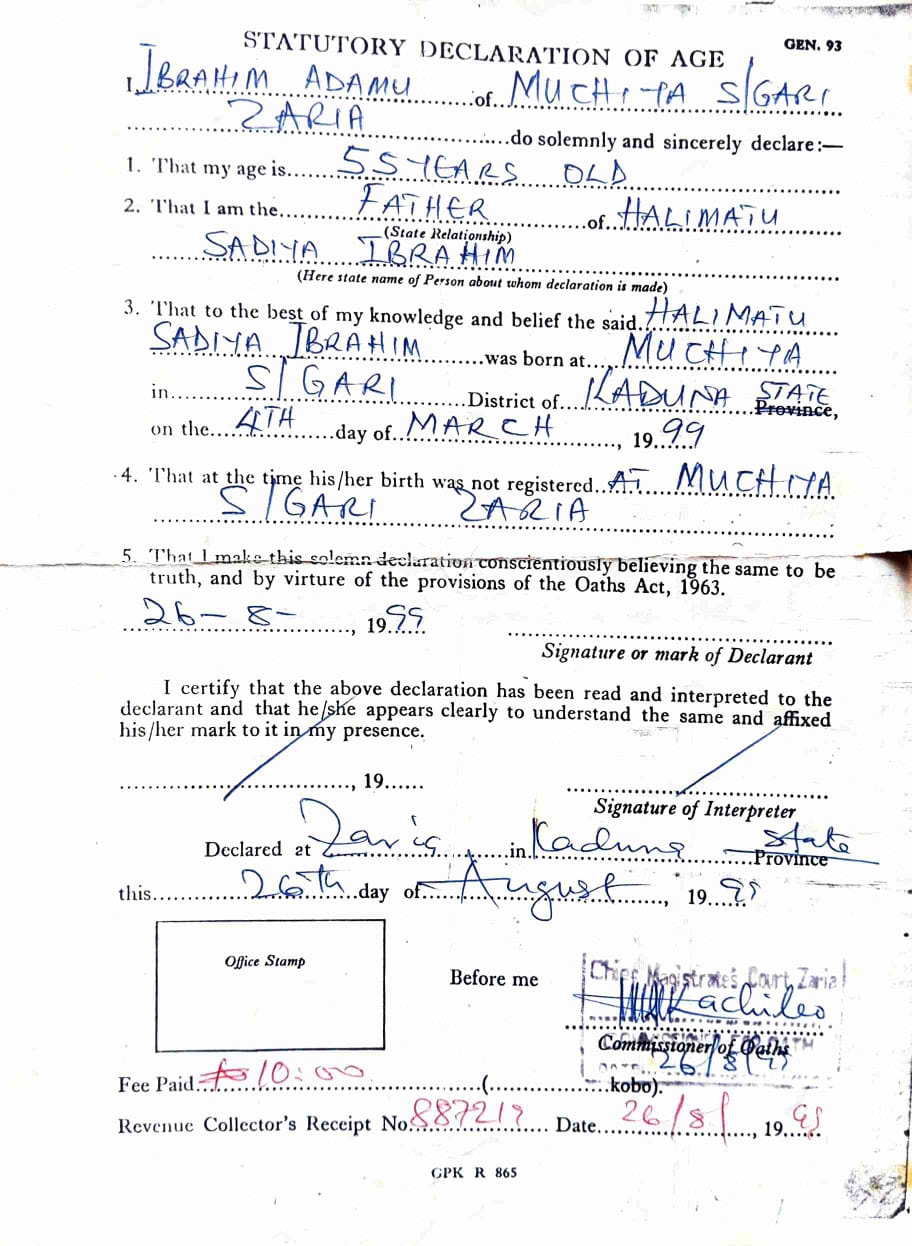 STATUTORY DECLARATION OF AGE GEN. 93
I, IBRAHIM ADAMU of MUCHIYA S/GARI
ZARIA do solemnly and sincerely declare:—
1. That my age is 55 YEARS OLD
2. That I am the FATHER of HALIMATU
(State Relationship)
SADIYA IBRAHIM
(Here state name of Person about whom declaration is made)
3. That to the best of my knowledge and belief the said HALIMATU
SADIYA IBRAHIM was born at MUCHIYA
in S/GARI District of KADUNA STATE Province,
on the 4TH day of MARCH, 1999
4. That at the time his/her birth was not registered AT MUCHIYA
S/GARI ZARIA
5. That I make this solemn declaration conscientiously believing the same to be
truth, and by virture of the provisions of the Oaths Act, 1963.
26-8-, 1999
Signature or mark of Declarant
I certify that the above declaration has been read and interpreted to the
declarant and that he/she appears clearly to understand the same and affixed
his/her mark to it in my presence.
, 19
Signature of Interpreter
Declared at Zaria in Kaduna State
Province
this 26th day of August, 1999
Office Stamp
Before me
Chief Magistrate's Court Zaria
Commissioner of Oaths
26/8/99
Fee Paid ₦10:00 ( kobo).
Revenue Collector's Receipt No. Date 26/8/, 1999
GPK R 865